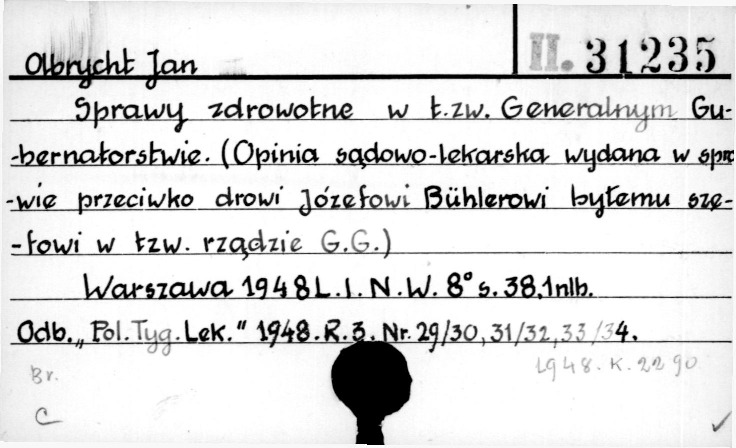 Olbrycht Jan II. 31235
Sprawy zdrowotne w t.zw. Generalnym Gu-
-bernatorstwie. (Opinia sądowo-lekarska wydana w spra
-wie przeciwko drowi Józefowi Bühlerowi byłemu sze-
-fowi w tzw. rządzie G.G.)
Warszawa 1948 L.I.N.W. 8° s. 38,1nlb.
Odb. „Pol.Tyg.Lek." 1948.R.3. Nr. 29/30, 31/32, 33/34.
Br. 1948.K.2290
C